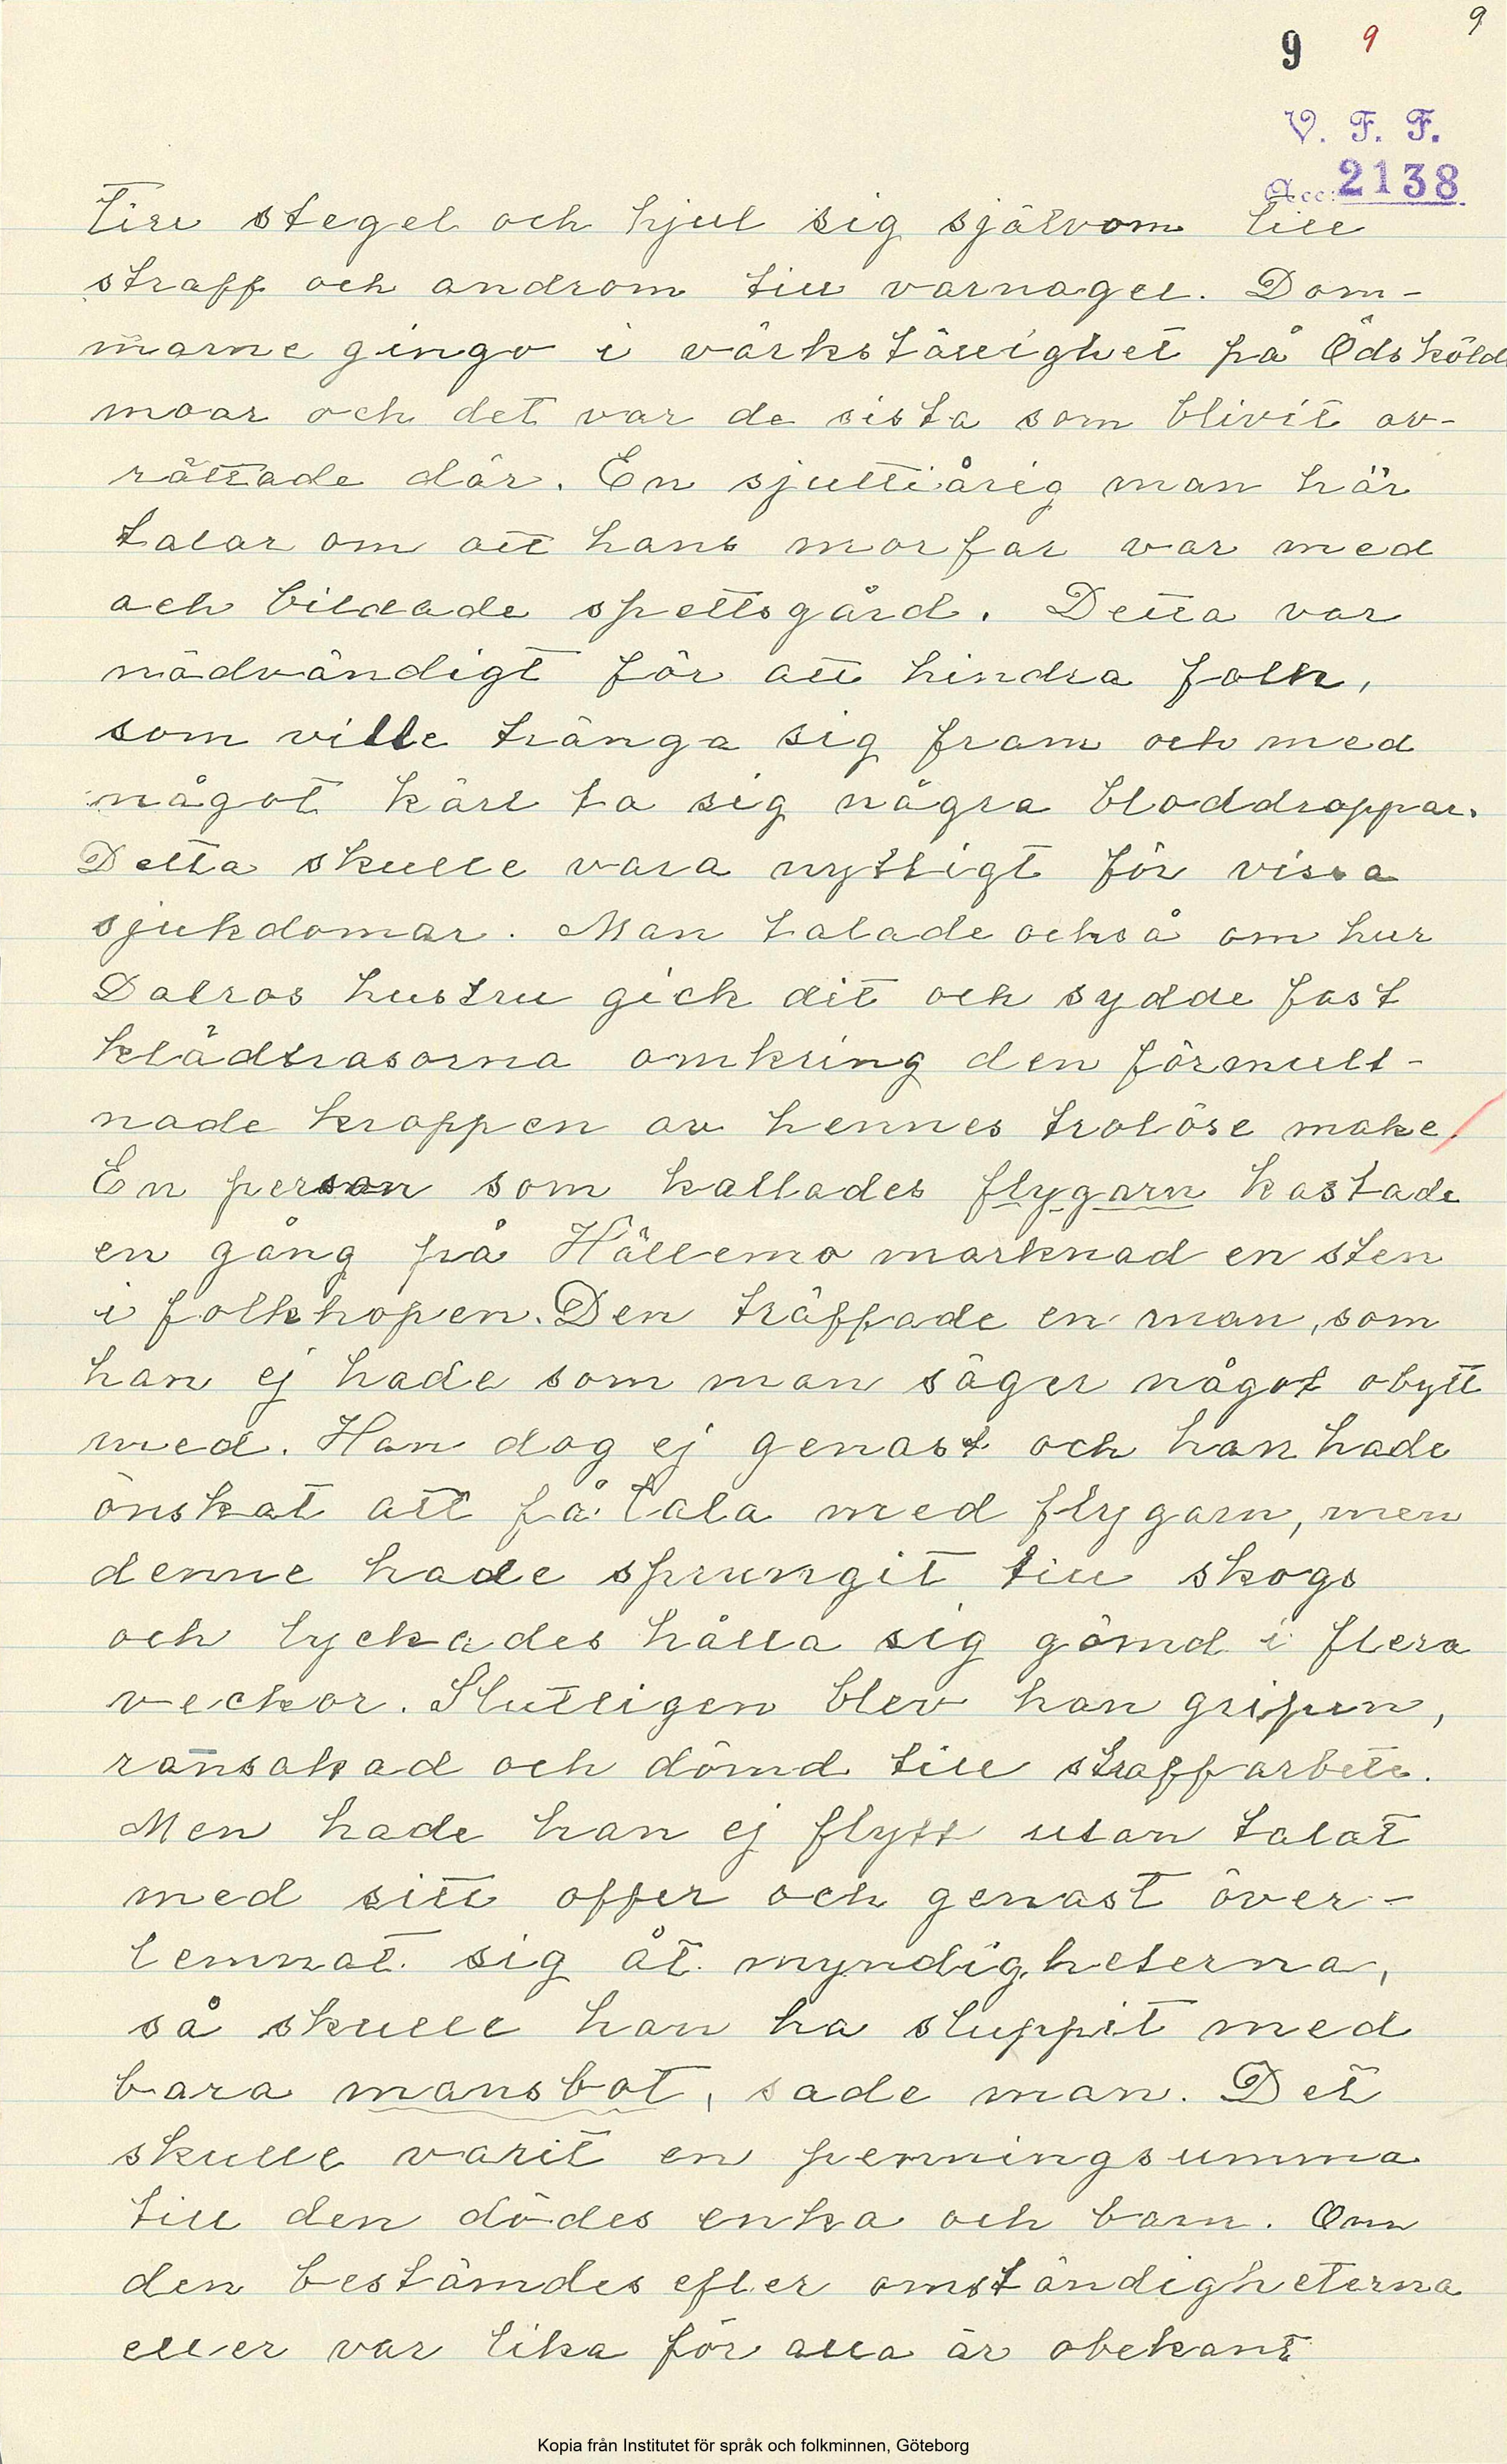 9 9 9
V. F. F.
Acc: 2138
till stegel och hjul sig självom till
straff och androm till varnagel. Dom-
marne gingo i värkställighet på Ödsköld
moar och det var de sista som blivit av-
rättade där. En sjuttiårig man här
talar om att hans morfar var med
och bildade spettsgård. Detta var
nödvändigt för att hindra folk,
som ville tränga sig fram och med
något kärl ta sig några bloddroppar.
Detta skulle vara nyttigt för vissa
sjukdomar. Man talade också om hur
Dalros hustru gick dit och sydde fast
klädtrasorna omkring den förmult-
nade kroppen av hennes trolöse make.
En person som kallades flygarn kastade
en gång på Hällemo marknad en sten
i folkhopen. Den träffade en man, som
han ej hade som man säger något obytt
med. Han dog ej genast och han hade
önskat att få tala med flygarn, men
denne hade sprungit till skogs
och lyckades hålla sig gömd i flera
veckor. Slutligen blev han gripen,
ransakad och dömd till straffarbete.
Men hade han ej flytt utan talat
med sitt offer och genast över-
lemnat sig åt myndigheterna,
så skulle han ha sluppit med
bara mansbot, sade man. Det
skulle varit en penningsumma
till den dödes enka och barn. Om
den bestämdes efter omständigheterna
eller var lika för alla är obekant
Kopia från Institutet för språk och folkminnen, Göteborg